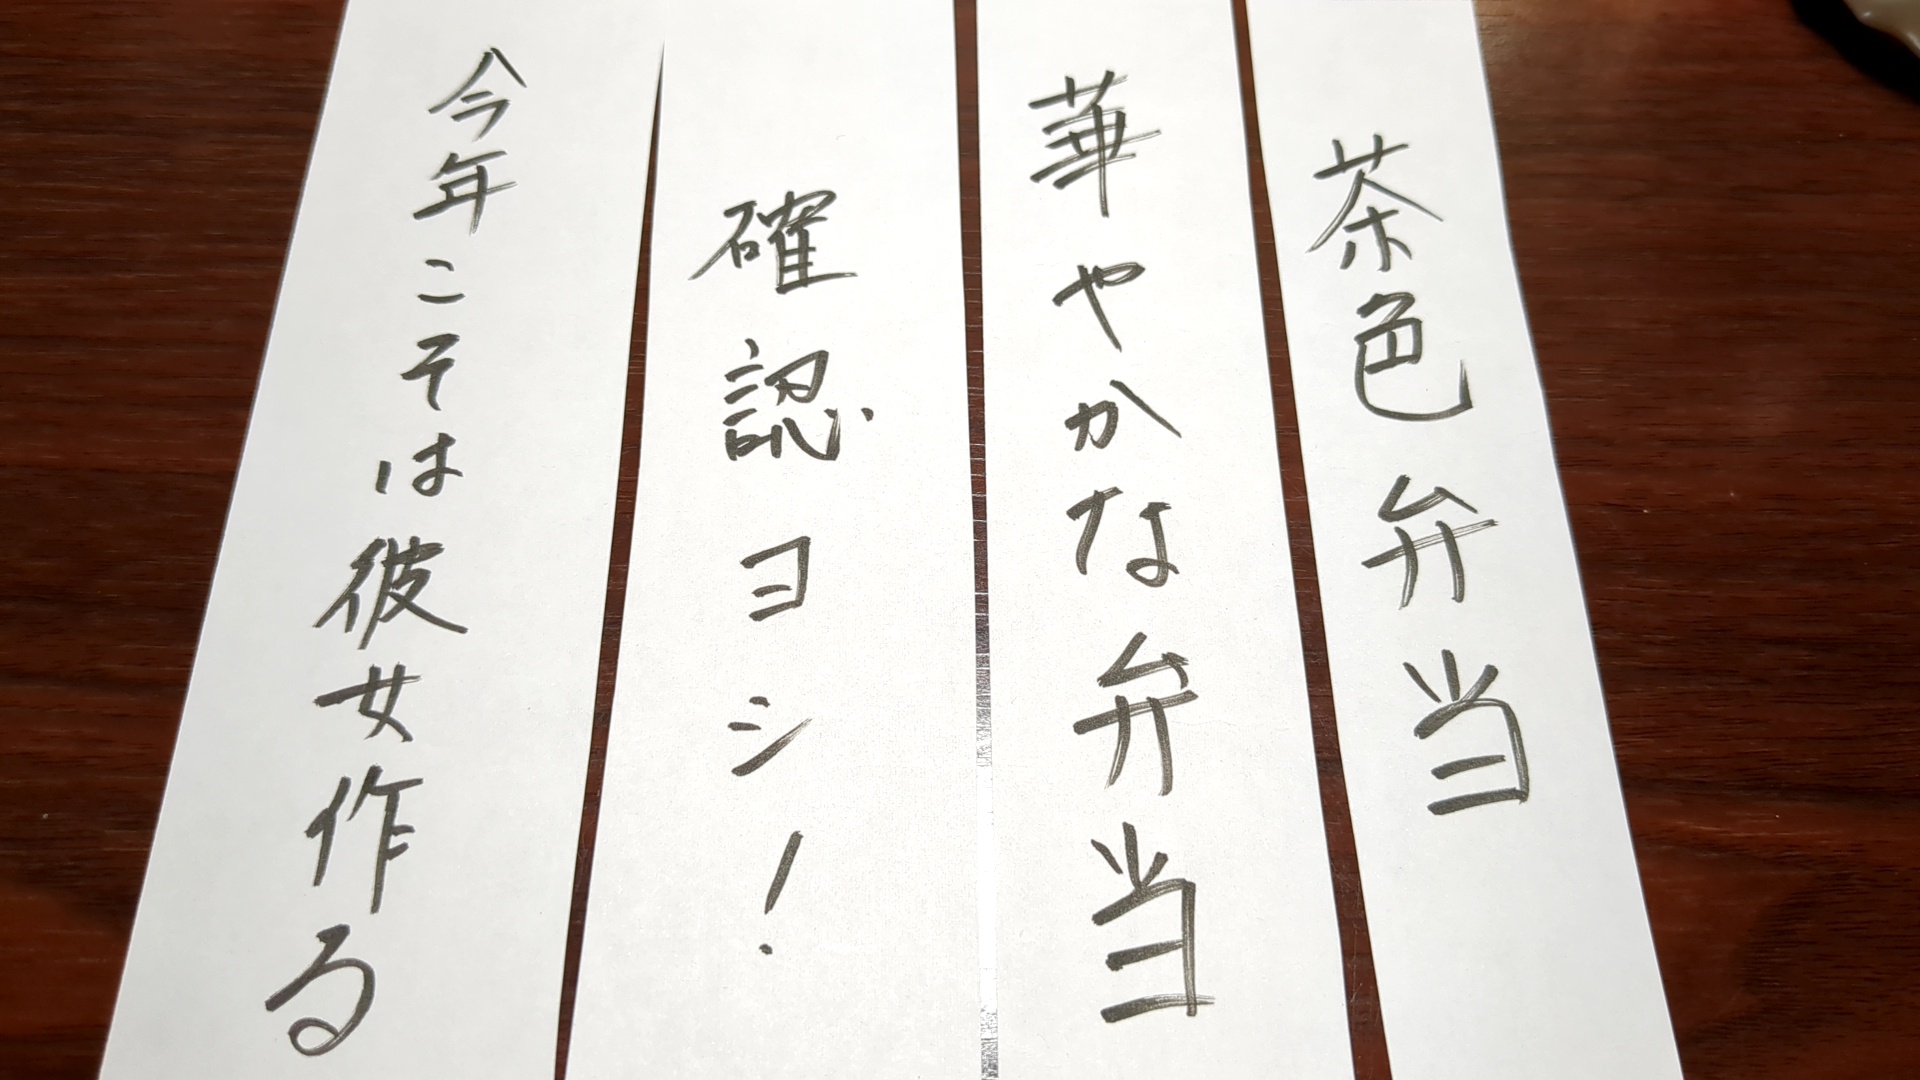 茶色弁当
華やかな弁当
確認ヨシ!
今年こそは彼女作る